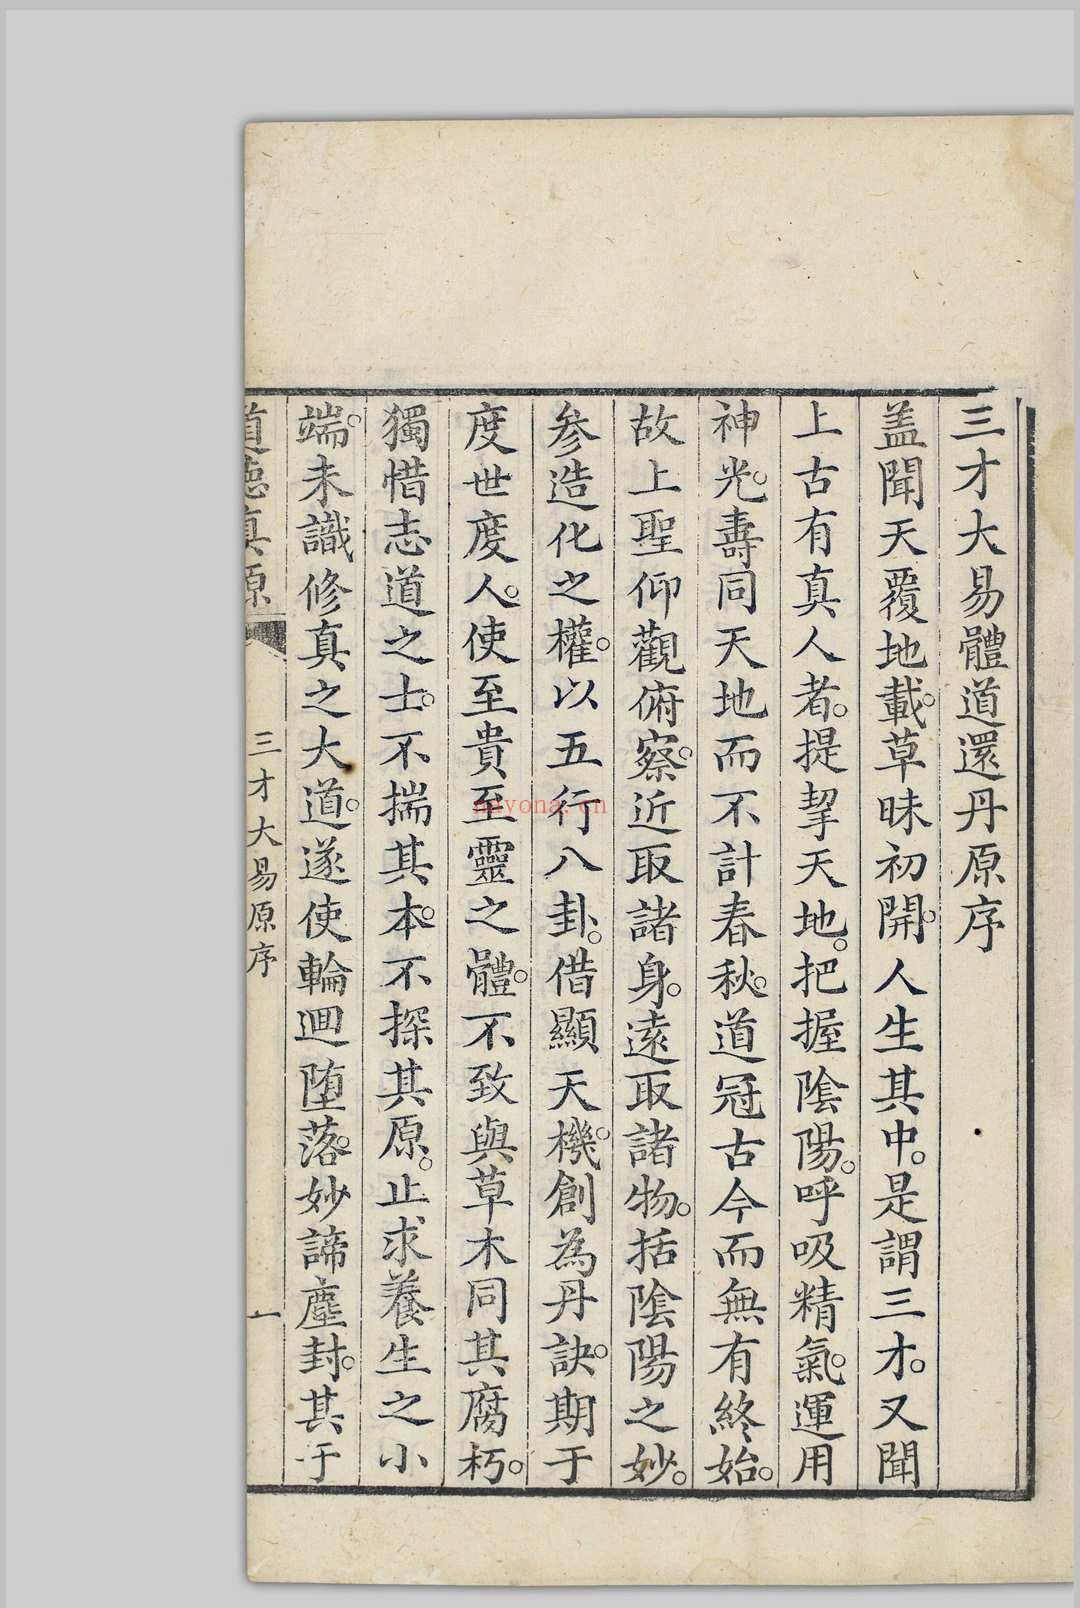 三才大易體道還丹原序
蓋聞天覆地載。草昧初開。人生其中。是謂三才。又聞
上古有真人者。提挈天地。把握陰陽。呼吸精氣。運用
神光。壽同天地而不計春秋。道冠古今而無有終始。
故上聖仰觀俯察。近取諸身。遠取諸物。括陰陽之妙。
参造化之權。以五行八卦。借顯天機。創為丹訣。期于
度世度人。使至貴至靈之體。不致與草木同其腐朽。
獨惜志道之士。不揣其本。不探其原。止求養生之小
端。未識修真之大道。遂使輪迴墮落。妙諦塵封。其于
道德真原
三才大易原序
一
nayona.cn